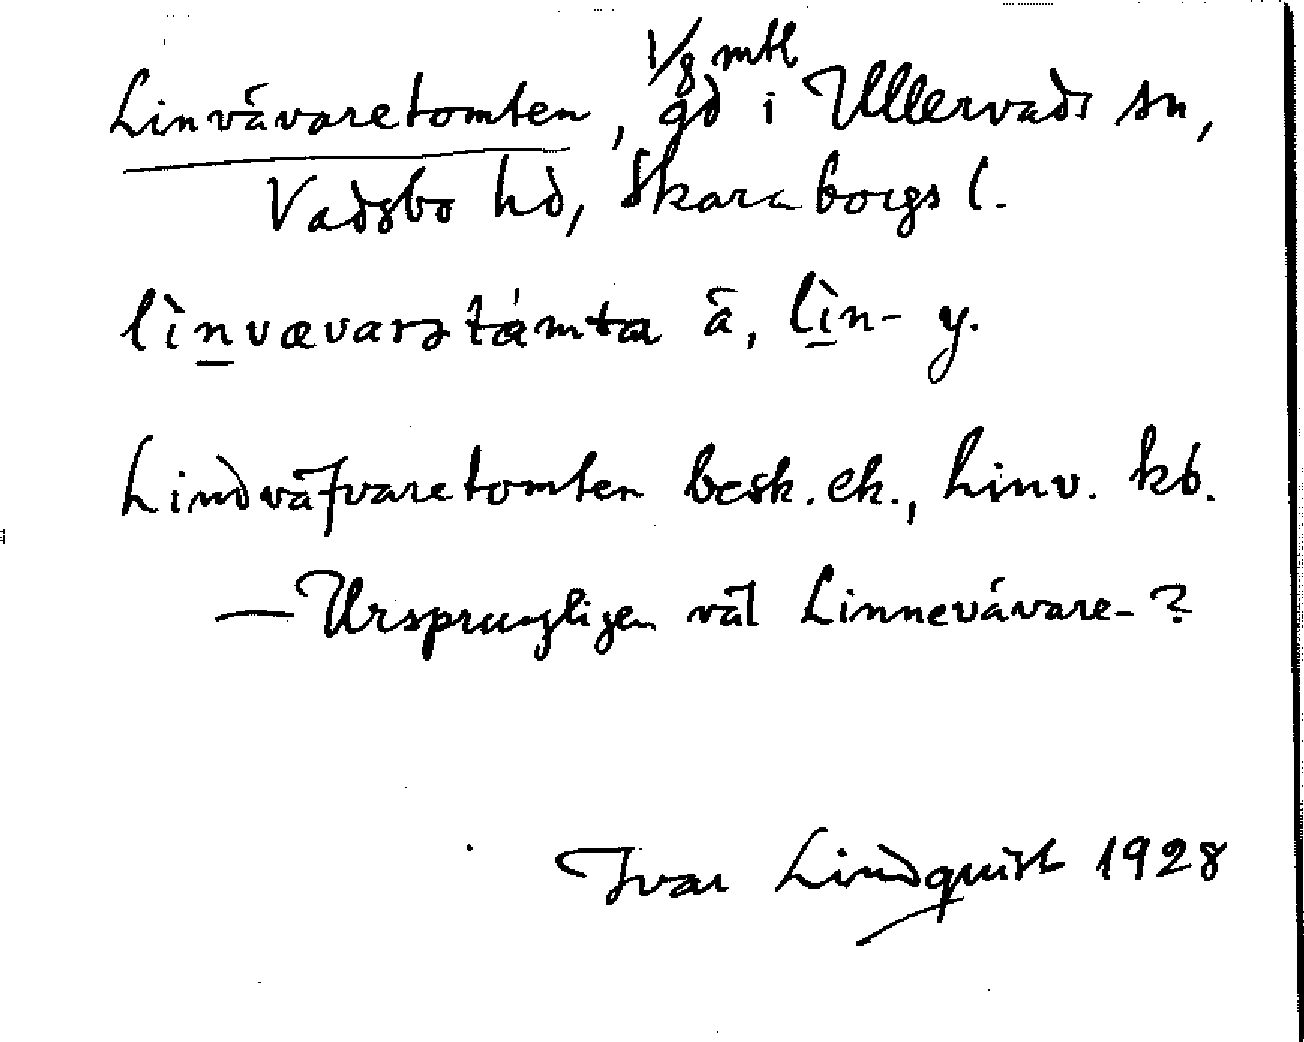 Linvävaretomten, 1/8 mtl gd i Ullervads sn,
Vadsbo hd, Skaraborgs l.
lìnvævarətámta ä, lìn- y.
Lindväfvaretomten besk. ek., Linv. kb.
— Ursprungligen väl Linnevävare-?
Ivar Lindquist 1928